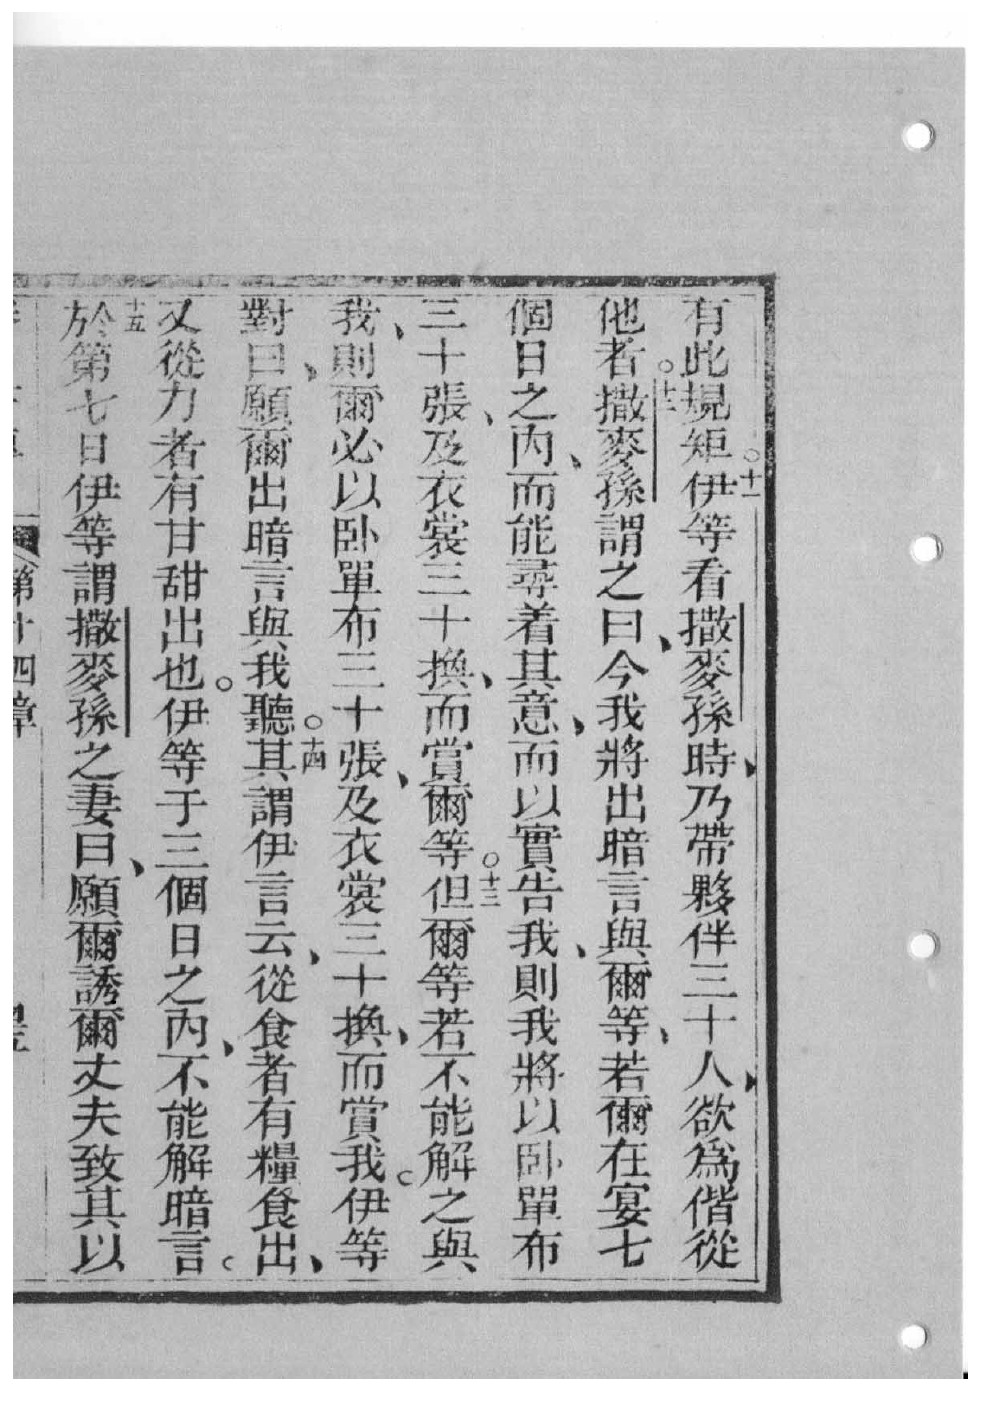 有此規矩。十一伊等看撒麥孫時、乃帶夥伴三十人、欲為偕從
他者。十二撒麥孫謂之曰、今我將出暗言與爾等、若爾在宴七
個日之內、而能尋着其意、而以實告我、則我將以卧單布
三十張、及衣裳三十換、而賞爾等。十三但爾等若不能解之與
我、則爾必以卧單布三十張、及衣裳三十換、而賞我。伊等
對曰、願爾出暗言與我聽。十四其謂伊言云、從食者有糧食出、
又從力者有甘甜出也。伊等于三個日之內、不能解暗言。
十五於第七日伊等謂撒麥孫之妻曰、願爾誘爾丈夫致其以
第十四章